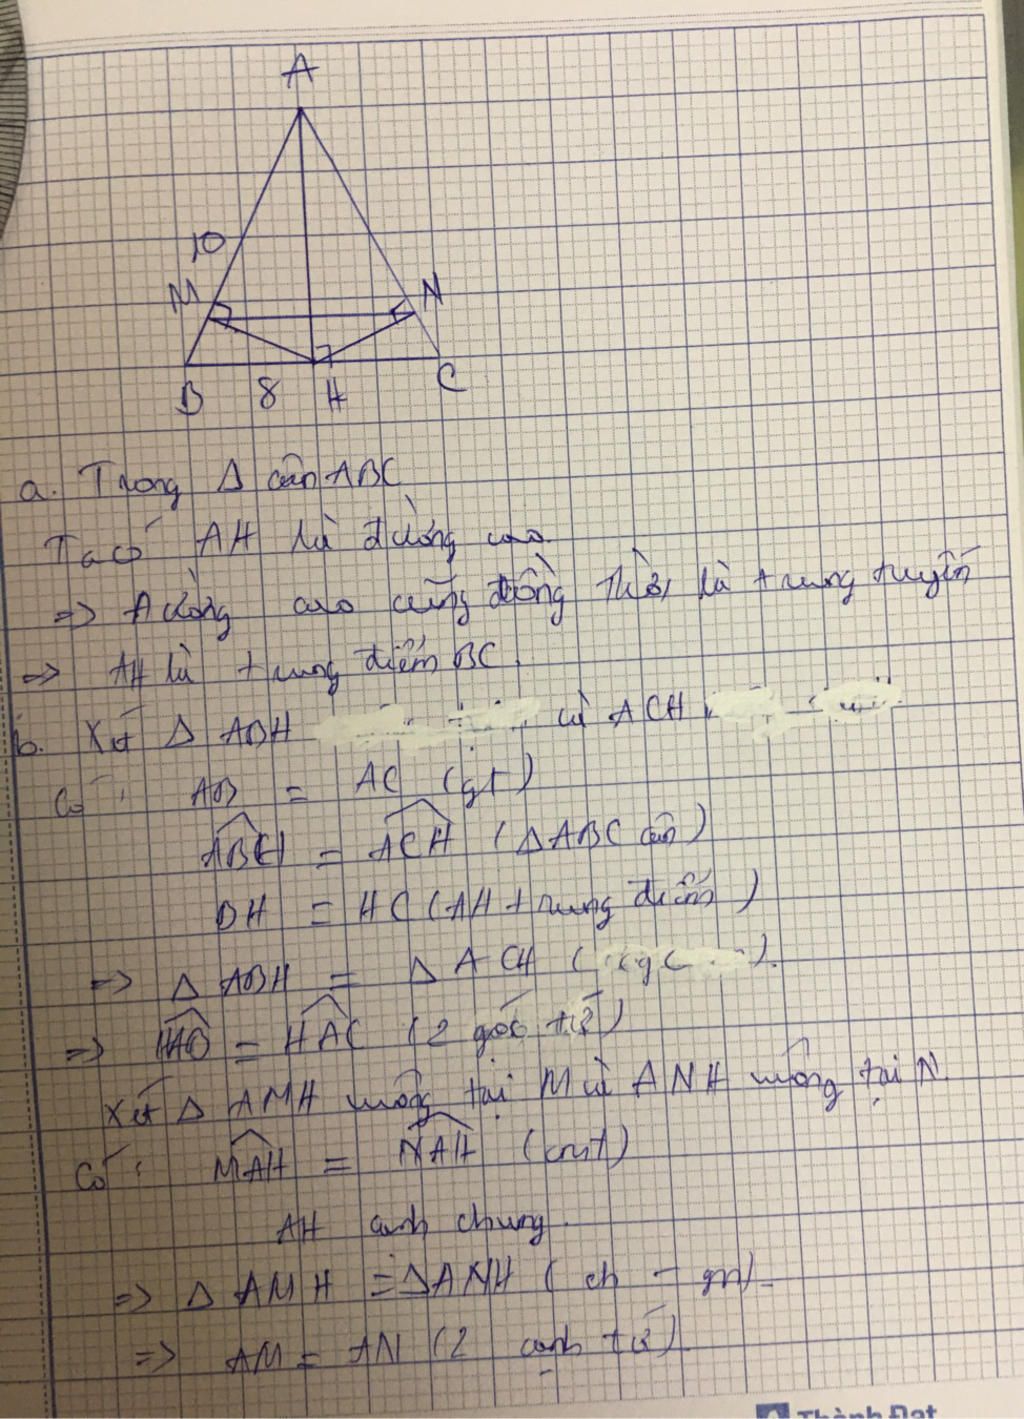 A
10
M
N
B 8 H C
a. Trong Δ cân ABC
Ta có AH là đường cao.
=> Đường cao cũng đồng thời là trung tuyến
=> AH là trung điểm BC
b. Xét Δ ABH và ACH
Có: AB = AC (gt)
ABH = ACH (Δ ABC cân)
BH = HC (AH trung điểm)
=> Δ ABH = Δ ACH (cgc).
=> HAB = HAC (2 góc tứ)
Xét Δ AMH vuông tại M và ANH vuông tại N.
Có: MAH = NAH (cmt)
AH cạnh chung.
=> Δ AMH = Δ ANH (ch - gn).
=> AM = AN (2 cạnh tứ)
Thành Đạt